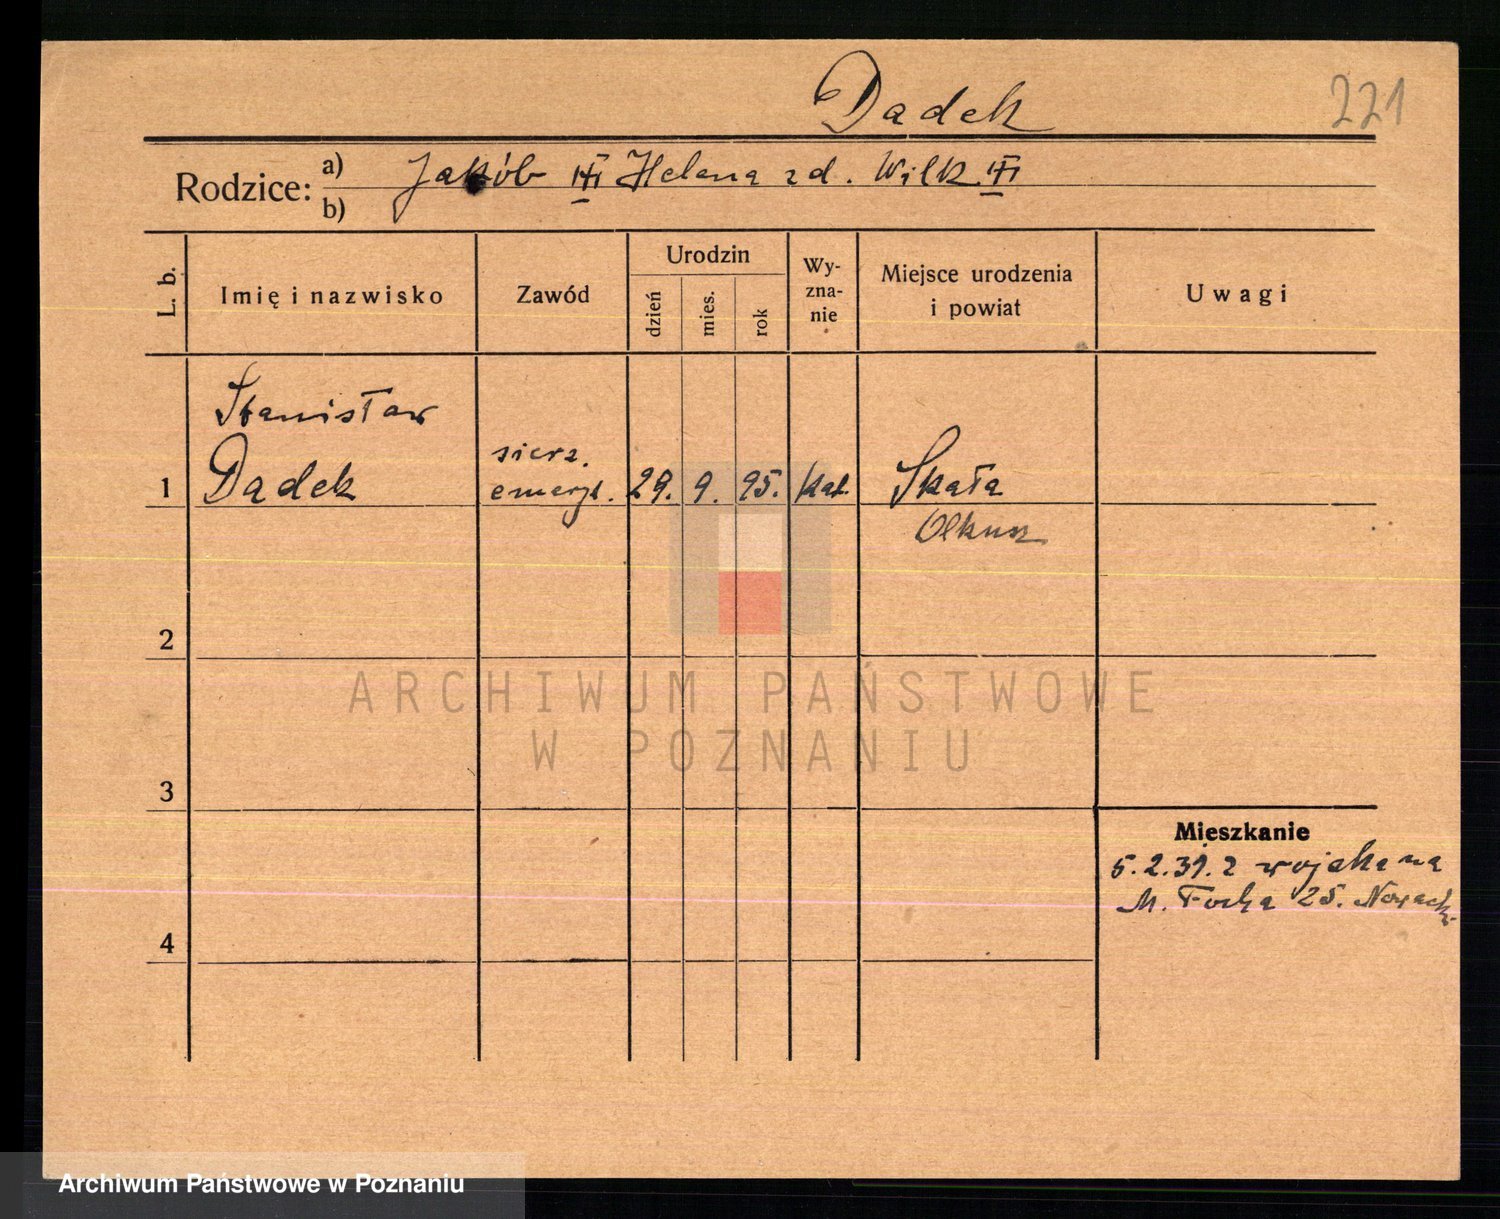 Dadek
221
Rodzice: a) Jakób Helena zd. Wilk
b)
L. b.
Imię i nazwisko
Zawód
Urodzin
dzień
mies.
rok
Wy-
zna-
nie
Miejsce urodzenia
i powiat
Uwagi
Stanisław
sierż.
1 Dadek emeryt. 29. 9. 95. kat. Skała
Olkusz
2
ARCHIWUM PAŃSTWOWE
W POZNANIU
3
Mieszkanie
5.2.31. z wojska na
M. Focha 25.
4
Archiwum Państwowe w Poznaniu